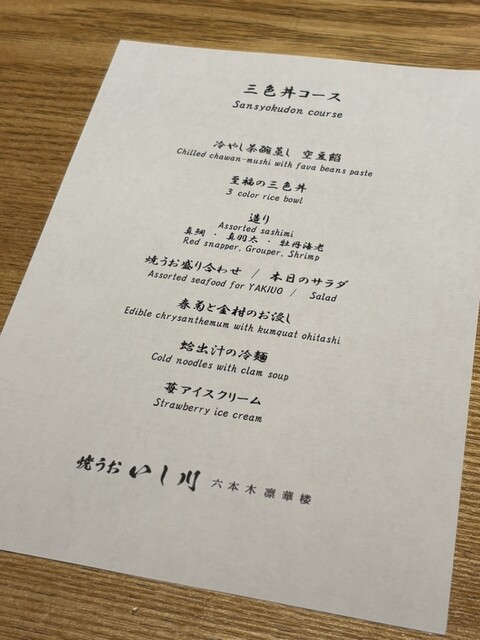 三色丼コース
Sansyokudon course
冷やし茶碗蒸し 空豆餡
Chilled chawan-mushi with fava beans paste
至福の三色丼
3 color rice bowl
造り
Assorted sashimi
真鯛 ・ 真羽太 ・ 牡丹海老
Red snapper, Grouper, Shrimp
焼うお盛り合わせ / 本日のサラダ
Assorted seafood for YAKIUO / Salad
春菊と金柑のお浸し
Edible chrysanthemum with kumquat ohitashi
蛤出汁の冷麺
Cold noodles with clam soup
苺アイスクリーム
Strawberry ice cream
焼うお いし川 六本木 凛華楼